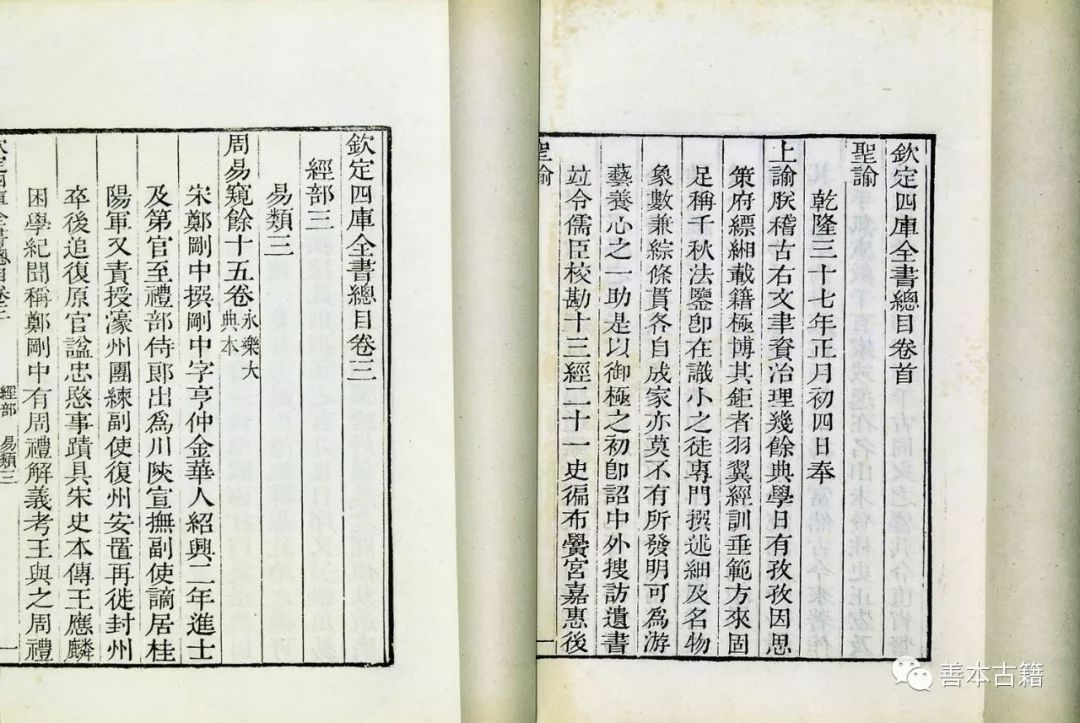 欽定四庫全書總目卷首
聖諭
乾隆三十七年正月初四日奉
上諭朕稽古右文聿資治理幾餘典學日有孜孜因思
策府縹緗載籍極博其鉅者羽翼經訓垂範方來固
足稱千秋法鑒卽在識小之徒專門撰述細及名物
象數兼綜條貫各自成家亦莫不有所發明可爲游
藝養心之一助是以御極之初卽詔中外搜訪遺書
竝令儒臣校勘十三經二十一史徧布黌宮嘉惠後
聖諭
一
欽定四庫全書總目卷三
經部三
易類三
周易窺餘十五卷永樂大典本
宋鄭剛中撰剛中字亨仲金華人紹興二年進士
及第官至禮部侍郎出爲川陝宣撫副使謫居桂
陽軍又責授濠州團練副使復州安置再徙封州
卒後追復原官諡忠愍事蹟具宋史本傳王應麟
困學紀聞稱鄭剛中有周禮解義考王與之周禮
欽定四庫全書總目卷三
經部 易類三
一
善本古籍